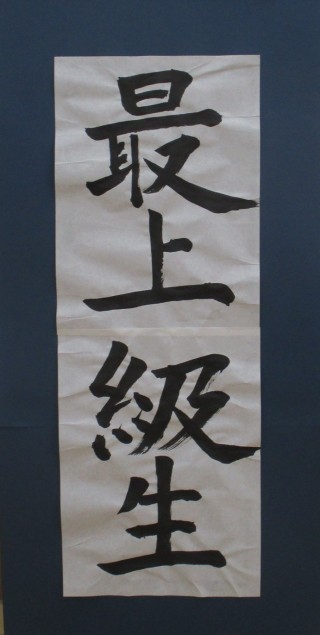 最上級生